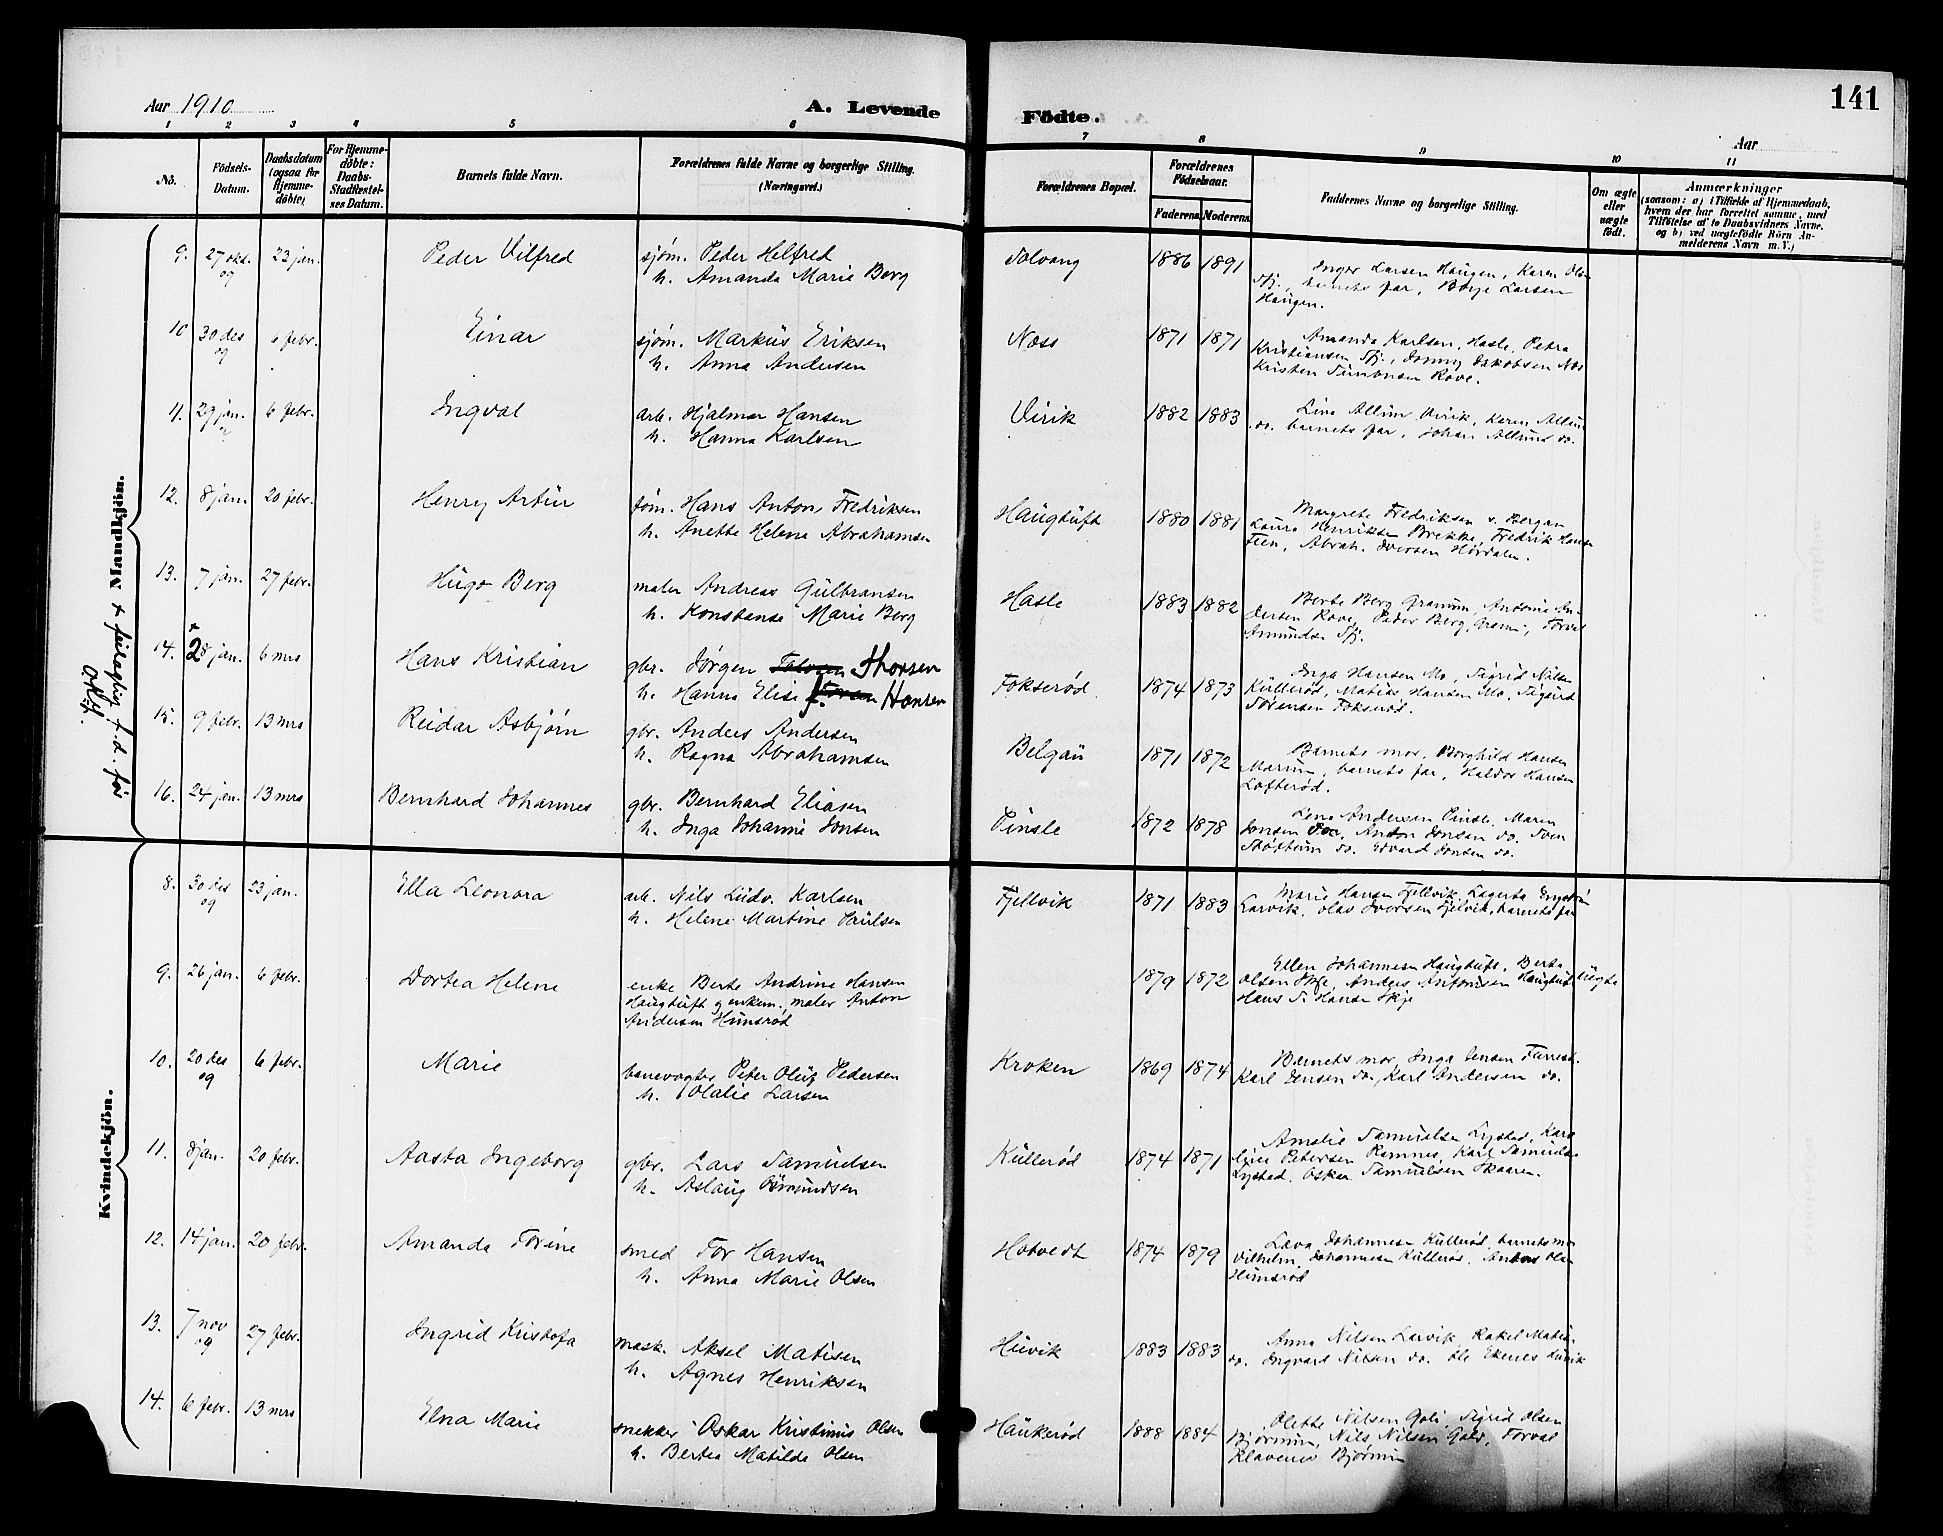 141
Aar 1910
A. Levende
Födte.
Aar
1 2 3 4 5 6 7 8 9 10 11
No.
Födsels-Datum.
Daabsdatum (ogsaa for Hjemme-döbte)
For Hjemme-döbte: Daabs-Stadfæstel-ses Datum.
Barnets fulde Navn.
Forældrenes fulde Navne og borgerlige Stilling. (Næringsvei.)
Forældrenes Bopæl.
Forældrenes Födselsaar.
Faderens. Moderens.
Faddernes Navne og borgerlige Stilling.
Om ægte eller uægte födt.
Anmærkninger
(saasom: a) i Tilfælde af Hjemmedaab,
hvem der har forrettet samme, med
Tilföielse af to Daabsvidners Navne,
og b) ved uægtefödte Börn An-
melderens Navn m. V.)
Mandkjön.
x feilagtig f. d. før
9. 27 okt. 09 23 jan. Peder Vilfred sjøm. Peder Helfred
h. Amanda Marie Berg
Solvang 1886 1891 Inger Larsen Haugen, Karen Olsen
Sfj., barnets far, Børje Larsen
Haugen.
10 30 des 09 6 febr. Einar sjøm. Markus Eriksen
h. Anna Andersen
Næss 1871 1871 Amanda Karlsen, Hasle, Petra
Kristiansen Sfj., Jonny Jakobsen Næs
Kristen Simonsen Rove.
11. 29 jan. 6 febr. Ingval arb. Hjalmar Hansen
h. Hanna Karlsen
Virik 1882 1883 Line Allum Virik, Karen Allum
do. barnets far, Johan Allum do.
12. 8 jan. 20 febr. Henry Artur søm. Hans Anton Fredriksen
h. Anette Helene Abrahamsen
Haugtuft 1880 1881 Margrete Fredriksen v. Bergan
Laura Henriksen Brekke, Fredrik Hansen
Feen, Abrah. Iversen Hørdalen.
13. 7 jan. 27 febr. Hugo Berg maler Andreas Gulbransen
h. Konstanse Marie Berg
Hasle 1883 1882 Berte Berg Granum, Antonie An-
dersen Rove, Peder Berg, Gran, Torval
Amundsen Sfj.
14. x 28 jan. 6 mrs Hans Kristian gbr. Jørgen Thorsen
h. Hanna Elise f. Hansen
Fokserød. 1874 1873 Inga Hansen Mo, Sigrid Nilsen
Kullerød, Matias Hansen Mo, Sigurd
Sørensen Fokserød.
15. 9 febr. 13 mrs Reidar Asbjørn gbr. Anders Andersen
h. Ragna Abrahamsen
Belgau 1871 1872 Barnets mor, Borghild Hansen
Marum, barnets far, Haldor Hansen
Lofterød.
16. 24 jan. 13 mrs Bernhard Johannes gbr. Bernhard Eliasen
h. Inga Johanne Jonsen
Pinsle 1872 1878 Lene Andersen Pinsle, Maren
Jonsen do., Anton Jonsen do. Sven
do. Edvard Jonsen do.
Kvindekjön.
8. 30 des 09 23 jan. Ella Leonora arb. Nils Ludv. Karlsen
h. Helene Martine Paulsen
Fjellvik 1871 1883 Marie Hansen Fjellvik, Lagerta Engström
Larvik, Olav Iversen Fjelvik, barnets far
9. 26 jan. 6 febr. Dortea Helene enke Berte Andrine Hansen
Haugtuft g enkem. maler Anton
Andersen Himsrød
1879 1872 Ellen Johannesen Haugtuft, Berte
Olsen Skje, Anders Antonsen Haugtuft uægte
Hans S. Hansen Skje
10. 20 des 09 6 febr. Marie banevogter Peter Oluf Pedersen
h. Olalie Larsen
Kroken 1869 1874 Barnets mor, Inga Jensen Furrest.
Karl Jensen do., Karl Andersen do.
11. 8 jan. 20 febr. Aasta Ingeborg gbr. Lars Samuelsen
h. Aslaug Osmundsen
Kullerød 1874 1871 Amalie Samuelsen Lystad, Karo
line Petersen Ramnes, Karl Samuelsen
Lystad, Oskar Samuelsen Skaaren.
12. 14 jan. 20 febr. Amanda Torine smed Tor Hansen
h. Anna Marie Olsen
Hotvedt 1874 1879 Lava Johannesen Kullerød, barnets mor
Vilhelm Johannesen Kullerød, Antons Olsen
Himsrød
13. 7 nov 09 27 febr. Ingrid Kristofa mask. Aksel Matisen
h. Agnes Henriksen
Huvik 1883 1883 Anna Nilsen Larvik, Rakel Matis.
do. Ingvard Nilsen do. Ole Ekenes Huvik
14. 6 febr. 13 mrs Elna Marie snekker Oskar Kristinius Olsen
h. Bertea Matilde Olsen
Haukerød 1888 1884 Olette Nilsen Gali, Sigrid Olsen
Bjørnum, Nils Nilsen Gali, Torval
Klavenes Bjørnum